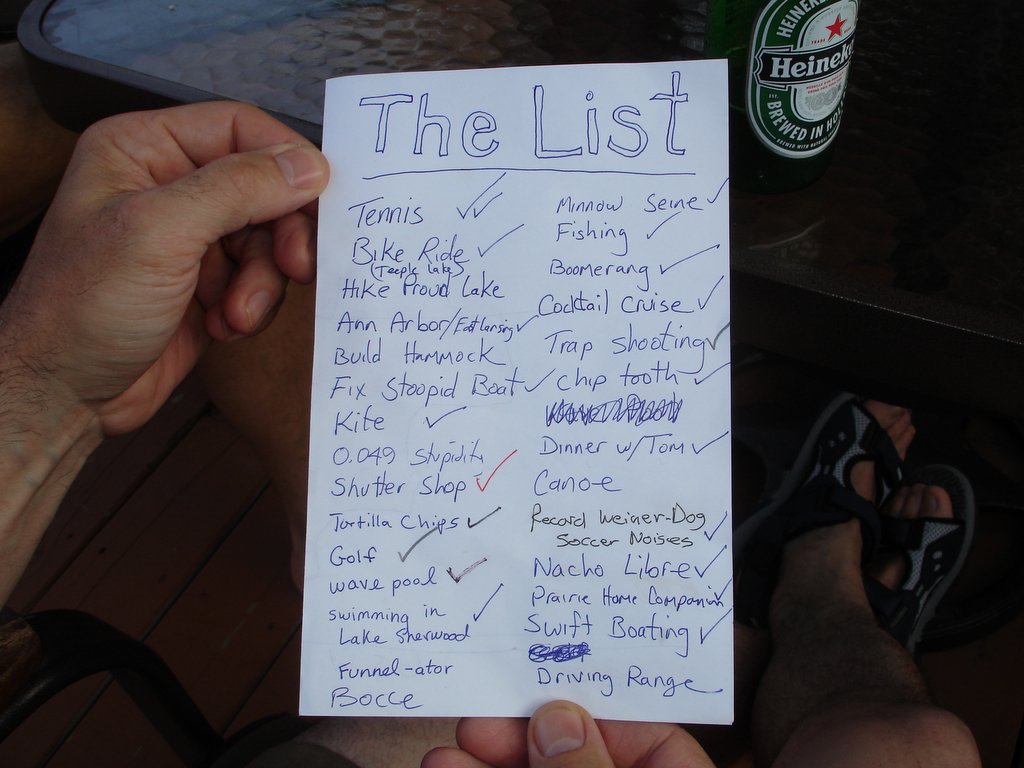 The List
Tennis
Bike Ride
(Teeple Lake)
Hike Proud Lake
Ann Arbor/East Lansing
Build Hammock
Fix Stoopid Boat
Kite
0.049 Stupidity
Shutter Shop
Tortilla Chips
Golf
wave pool
swimming in
Lake Sherwood
Funnel-ator
Bocce
Minnow Seine
Fishing
Boomerang
Cocktail Cruise
Trap Shooting
Chip tooth
Dinner w/Tom
Canoe
Record Weiner-Dog
Soccer Noises
Nacho Libre
Prairie Home Companion
Swift Boating
Driving Range
HEINEKE
TRADE MARK
Heineke
EST.
BREWED IN HO